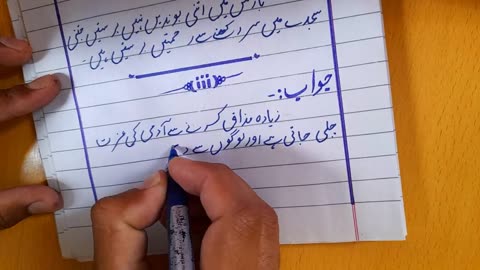 بارش میں اتنی بوندیں نہیں برستیں جتنی
سجدے میں سر رکھنے سے رحمتیں برستی ہیں۔
(iii)
جواب:-
زیادہ مذاق کرنے سے آدمی کی عزت
چلی جاتی ہے اور لوگوں سے